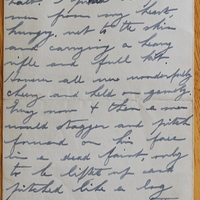 halt. I
men from my
hungry, wet to the skin
and carrying a heavy
rifle and full kit.
all were wonderfully
cheery and held on gamely.
Every now & then a man
would stagger and pitch
forward on his face
in a dead faint, only
to be lifted up and
pitched like a log